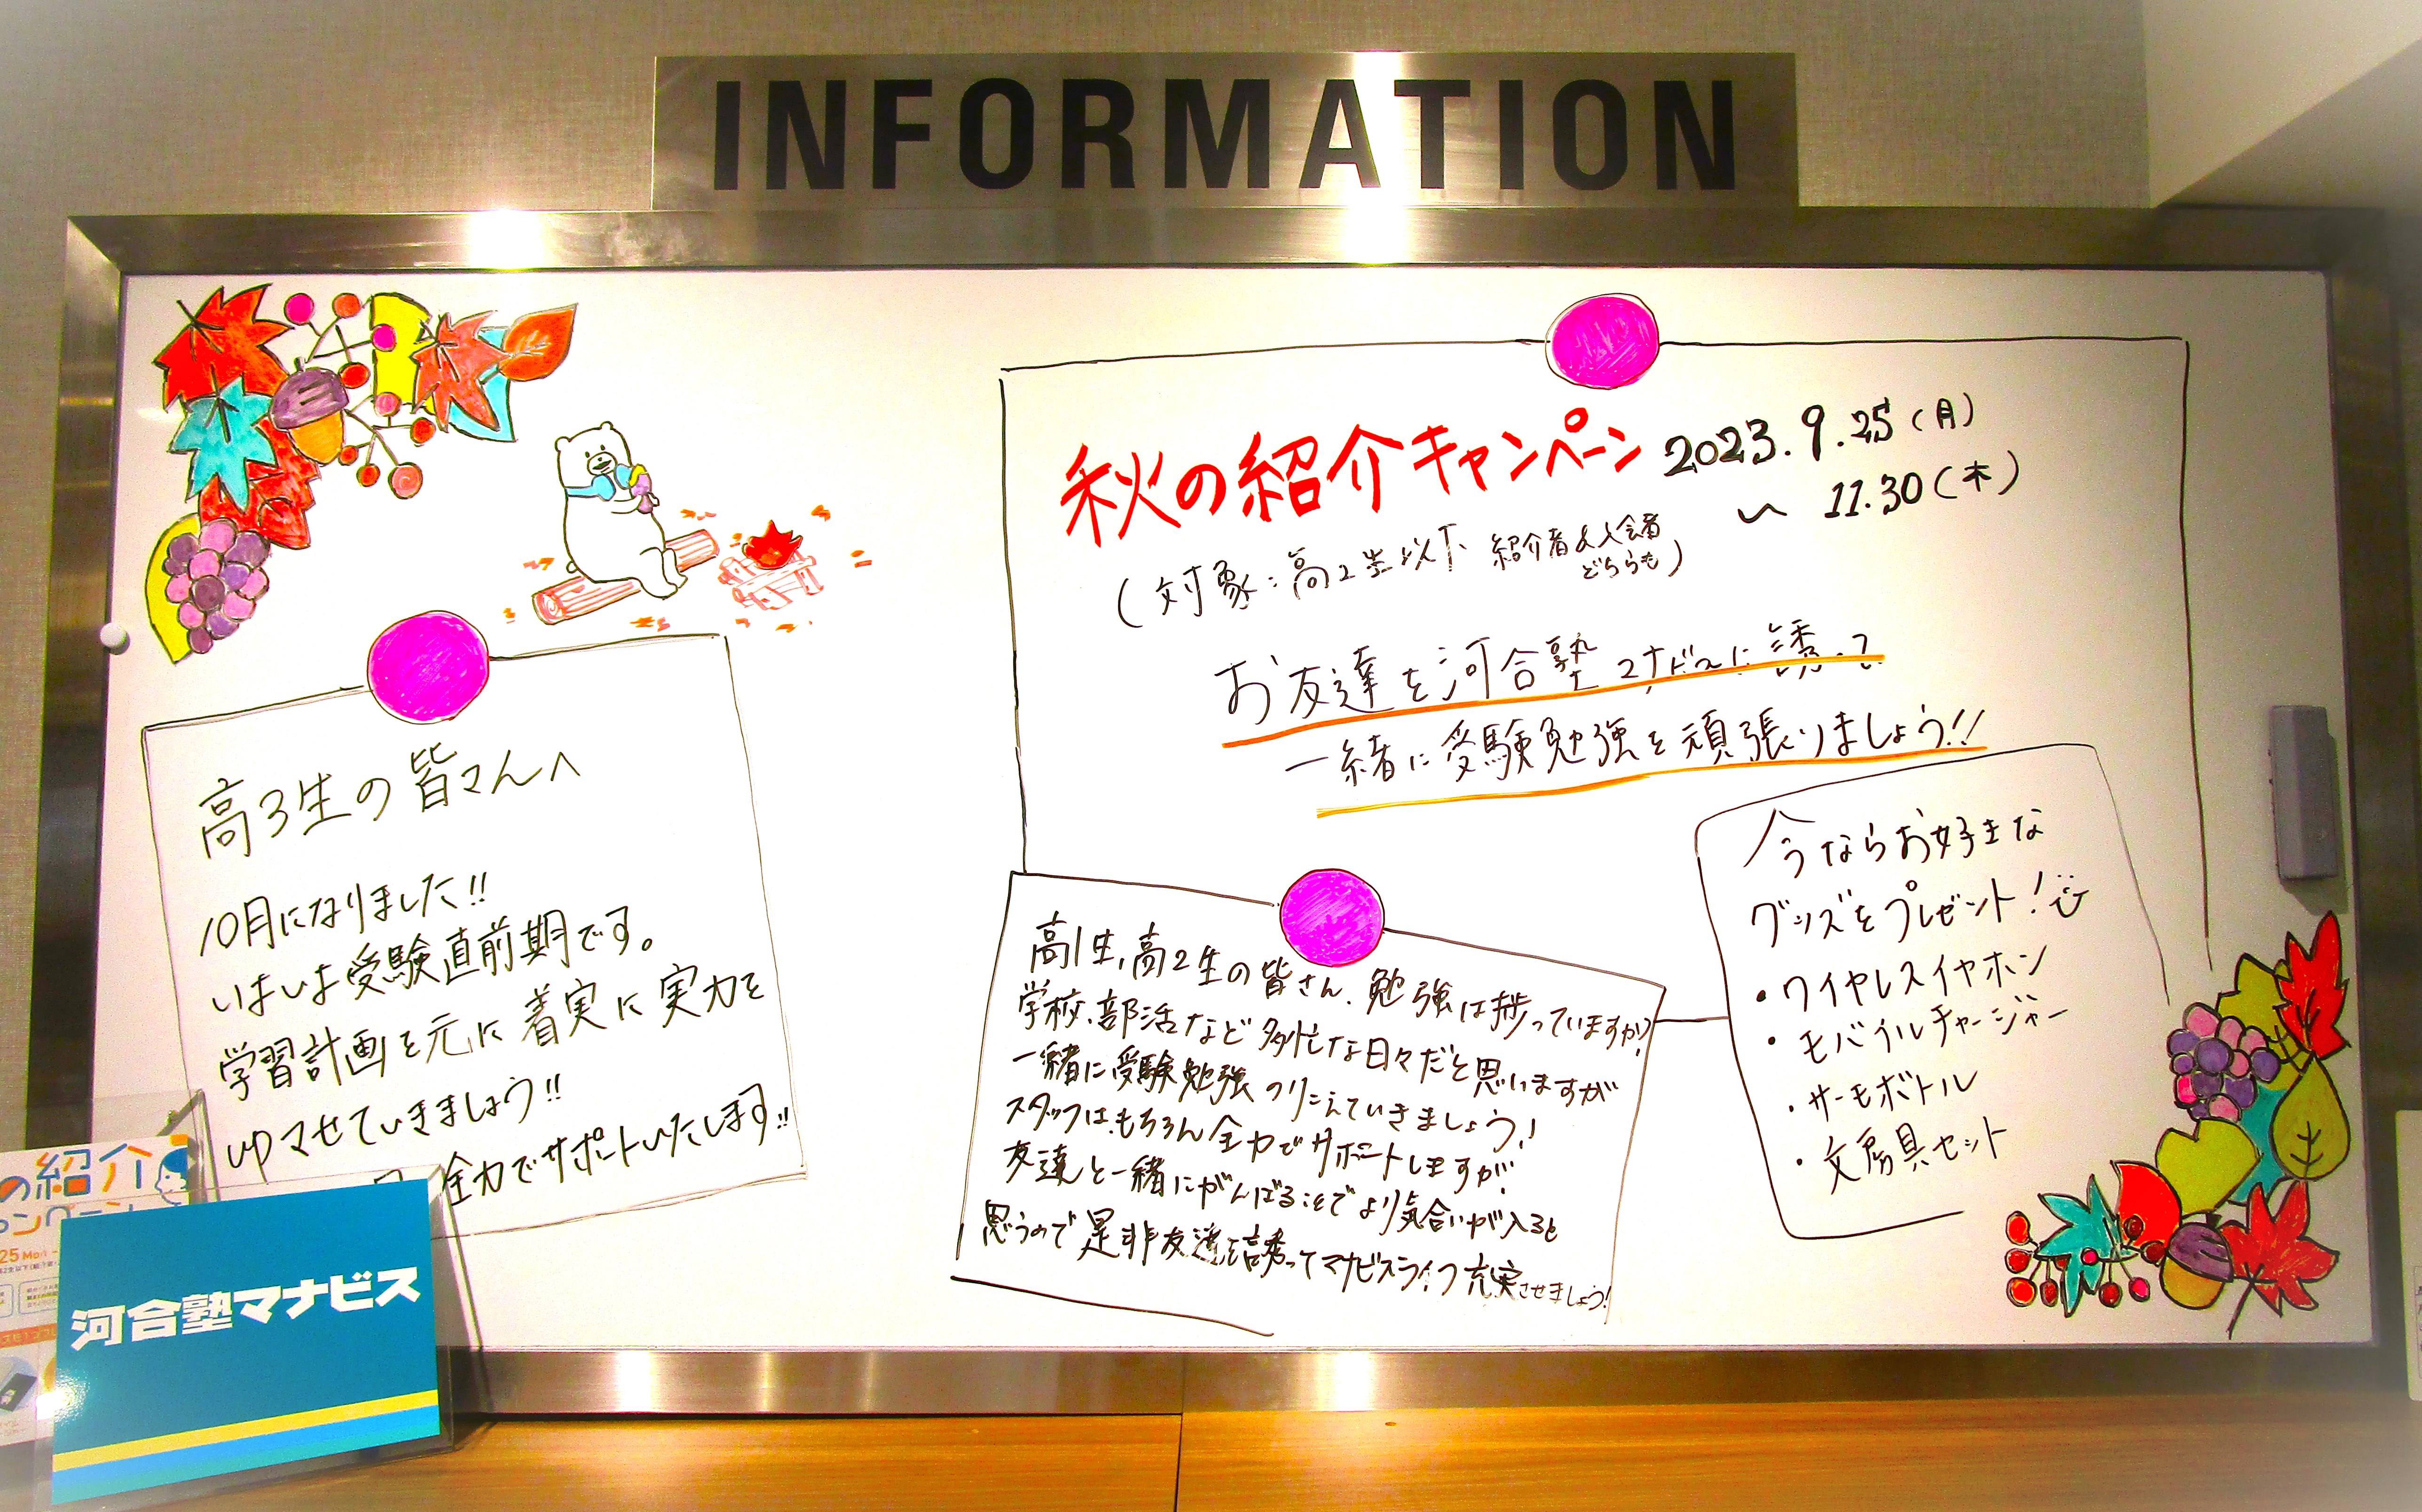 INFORMATION
秋の紹介キャンペーン 2023.9.25(月)
~ 11.30(木)
(対象:高2生以下 紹介者&入会者
どちらも)
お友達を河合塾マナビスに誘って
一緒に受験勉強を頑張りましょう!!
高3生の皆さんへ
10月になりました!!
いよいよ受験直前期です。
学習計画を元に着実に実力を
UPさせていきましょう!!
全力でサポートいたします!!
高1生、高2生の皆さん、勉強は捗っていますか?
学校、部活など多忙な日々だと思いますが
一緒に受験勉強のりこえていきましょう!
スタッフはもちろん全力でサポートしますが、
友達と一緒にがんばることでより気合いが入ると
思うので是非友達を誘ってマナビスライフ充実させましょう!
今ならお好きな
グッズをプレゼント!
・ワイヤレスイヤホン
・モバイルチャージャー
・サーモボトル
・文房具セット
の紹介
25 Mon
河合塾マナビス